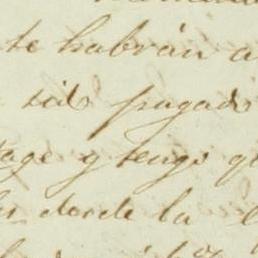 te habrán a
sido pagado
tage y tengo q
desde la